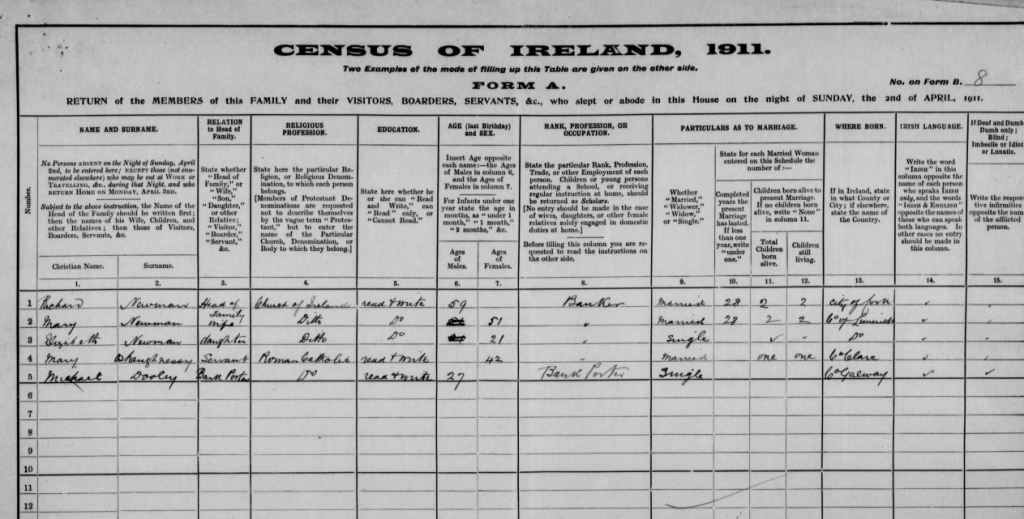 CENSUS OF IRELAND, 1911.
Two Examples of the mode of filling up this Table are given on the other side.
FORM A.
No. on Form B. 8
RETURN of the MEMBERS of this FAMILY and their VISITORS, BOARDERS, SERVANTS, &c., who slept or abode in this House on the night of SUNDAY, the 2nd of APRIL, 1911.
Number.
NAME AND SURNAME.
No Persons ABSENT on the Night of Sunday, April
2nd, to be entered here; EXCEPT those (not enu-
merated elsewhere) who may be out at WORK or
TRAVELLING, &c., during that Night, and who
RETURN HOME ON MONDAY, APRIL 3RD.
Subject to the above instruction, the Name of the
Head of the Family should be written first;
then the names of his Wife, Children, and
other Relatives; then those of Visitors,
Boarders, Servants, &c.
Christian Name. Surname.
1. 2.
RELATION
to Head of
Family.
State whether
"Head of
Family," or
"Wife,"
"Son,"
"Daughter,"
or other
Relative;
"Visitor,"
"Boarder,"
"Servant,"
&c.
3.
RELIGIOUS
PROFESSION.
State here the particular Re-
ligion, or Religious Denom-
ination, to which each person
belongs.
[Members of Protestant De-
nominations are requested
not to describe themselves
by the vague term "Protes-
tant," but to enter the
name of the Particular
Church, Denomination, or
Body to which they belong.]
4.
EDUCATION.
State here whether he
or she can "Read
and Write," can
"Read" only, or
"Cannot Read."
5.
AGE (last Birthday)
and SEX.
Insert Age opposite
each name:—the Ages
of Males in column 6,
and the Ages of
Females in column 7.
For Infants under one
year state the age in
months, as "under 1
month," "1 month,"
"2 months," &c.
Ages
of
Males.
Ages
of
Females.
6. 7.
RANK, PROFESSION, OR
OCCUPATION.
State the particular Rank, Profession,
Trade, or other Employment of each
person. Children or young persons
attending a School, or receiving
regular instruction at home, should
be returned as Scholars.
[No entry should be made in the case
of wives, daughters, or other female
relatives solely engaged in domestic
duties at home.]
Before filling this column you are re-
quested to read the instructions on
the other side.
8.
PARTICULARS AS TO MARRIAGE.
Whether
"Married,"
"Widower,"
"Widow,"
or "Single."
9.
State for each Married Woman
entered on this Schedule the
number of :—
Completed
years the
present
Marriage
has lasted.
If less
than one
year, write
"under
one."
10.
Children born alive to
present Marriage.
If no children born
alive, write "None"
in column 11.
Total
Children
born
alive.
Children
still
living.
11. 12.
WHERE BORN.
If in Ireland, state
in what County or
City; if elsewhere,
state the name of
the Country.
13.
IRISH LANGUAGE.
Write the word
"IRISH" in this
column opposite the
name of each person
who speaks IRISH
only, and the words
"IRISH & ENGLISH"
opposite the names of
those who can speak
both languages. In
other cases no entry
should be made in
this column.
14.
If Deaf and Dumb
Dumb only;
Blind;
Imbecile or Idiot
or Lunatic.
Write the respec
tive infirmities
opposite the nam
of the afflicted
person.
15.
1 Richard Newman Head of Family Church of Ireland read & write 59 Banker Married 28 2 2 city of Cork
2 Mary Newman wife Ditto Do 51 Married 28 2 2 Co of Limerick
3 Elizabeth Newman daughter Ditto Do 21 Single Do
4 Mary O'Shaughnessy Servant Roman Catholic read & write 42 Married one one Co Clare
5 Michael Dooley Bank Porter Do read & write 27 Bank Porter Single Co Galway
6
7
8
9
10
11
12